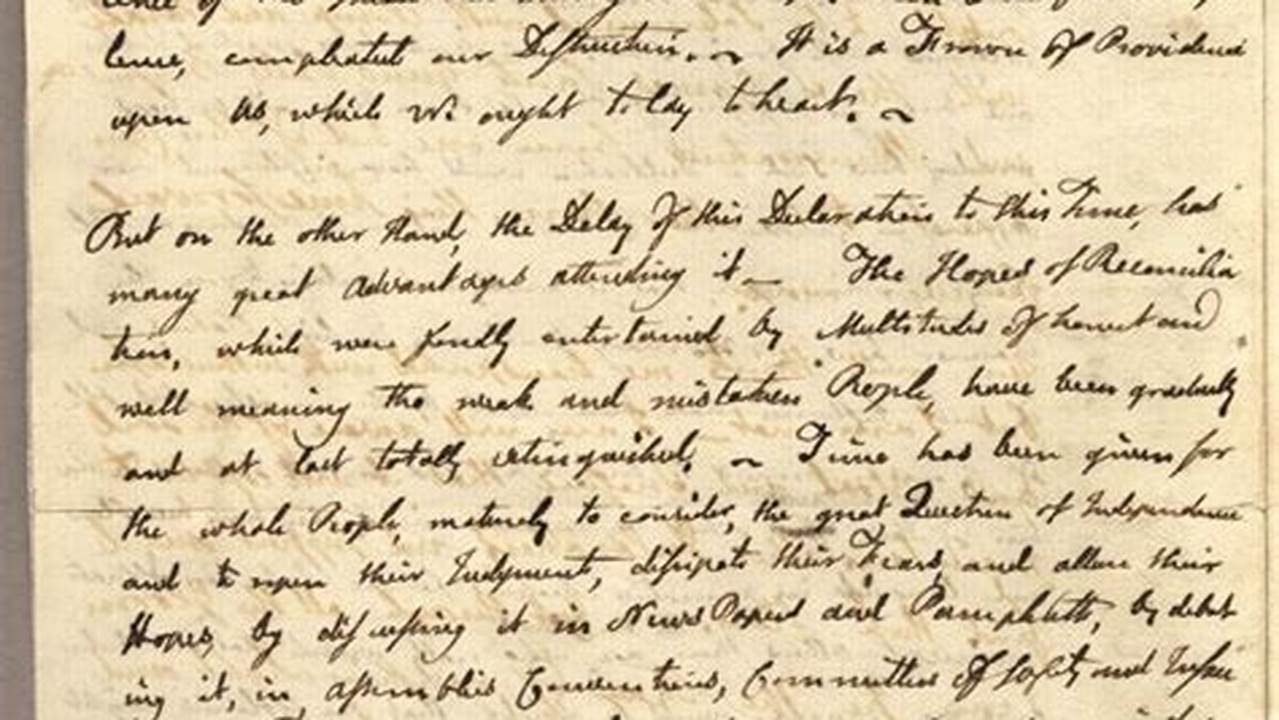 lence, compleated our Destruction. ~ It is a Frown of Providence
upon Us, which We ought to lay to heart. ~
But on the other Hand, the Delay of this Declaration to this Time, has
many great Advantages attending it — The Hopes of Reconcilia
tion, which were fondly entertained by Multitudes of honest and
well meaning tho weak and mistaken People, have been gradually
and at last totally extinguished. ~ Time has been given for
the whole People, maturely to consider, the great Question of Independence
and to ripen their Judgments, dissipate their Fears, and allure their
Hopes, by discussing it in News Papers and Pamphletts, by debat
ing it, in Assemblies Conventions, Committees of Safety and Inspec